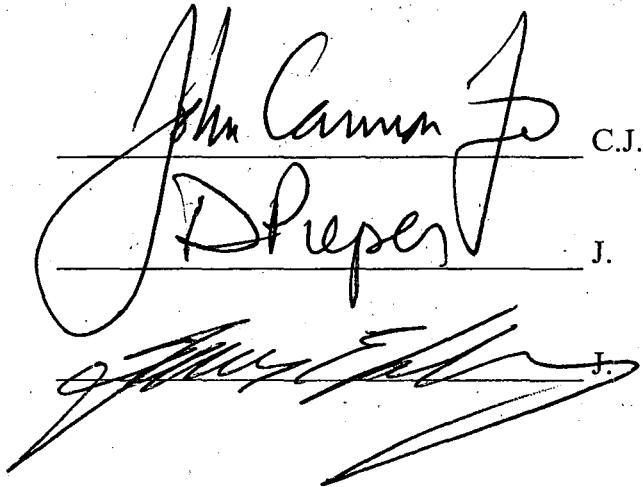 John Cannon Jr C.J.
D Pieper J.
J.